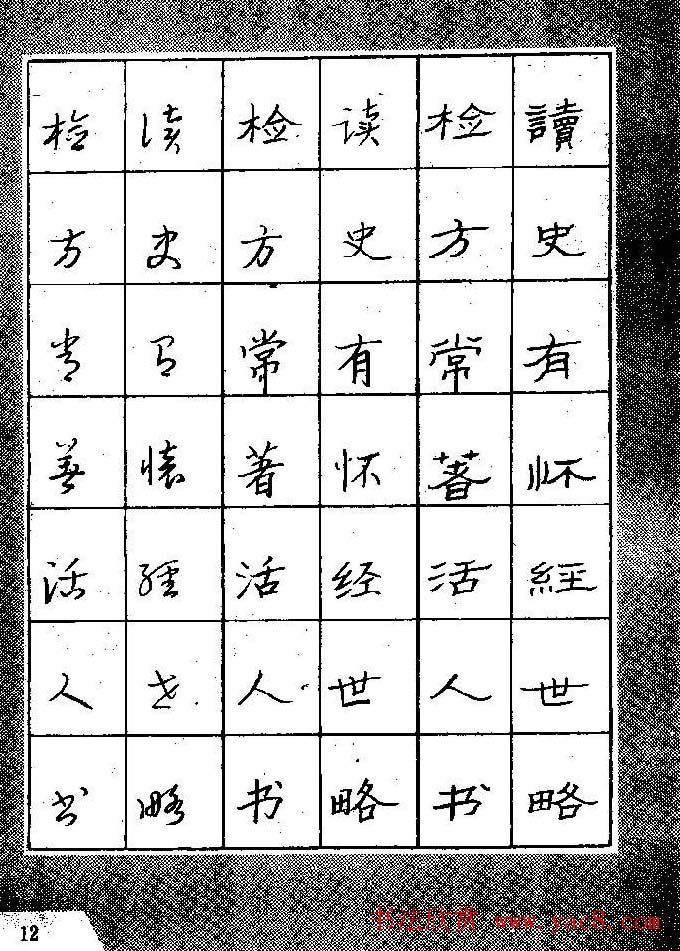 讀史有怀經世略
检方常著活人书
读史有怀经世略
检方常著活人书
读史有懷經世略
检方常著活人书
12
书法欣赏 www.yac8.com